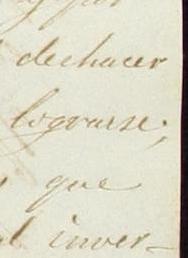 y por
deshacer
lograrse;
que
l inver-